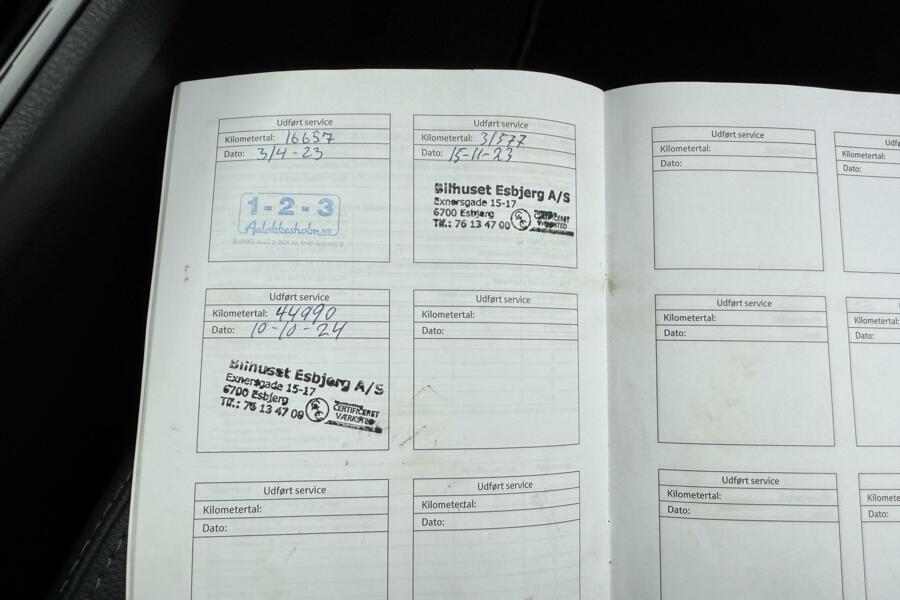 Udført service
Kilometertal: 16657
Dato: 3/4-23
1-2-3
Aaløkkesholm
Udført service
Kilometertal: 31577
Dato: 15-11-23
Bilhuset Esbjerg A/S
Exnersgade 15-17
6700 Esbjerg
Tlf.: 76 13 47 00
CERTIFICERET
VÆRKSTED
Udført service
Kilometertal: 44990
Dato: 10-10-24
Bilhuset Esbjerg A/S
Exnersgade 15-17
6700 Esbjerg
Tlf.: 76 13 47 00
CERTIFICERET
VÆRKSTED
Udført service
Kilometertal:
Dato:
Udført service
Kilometertal:
Dato:
Udført service
Kilometertal:
Dato:
Udført service
Kilometertal:
Dato:
Kilometertal:
Dato:
Udført service
Kilometertal:
Dato:
Kilometertal:
Dato:
Udført service
Kilometertal:
Dato:
Dato: